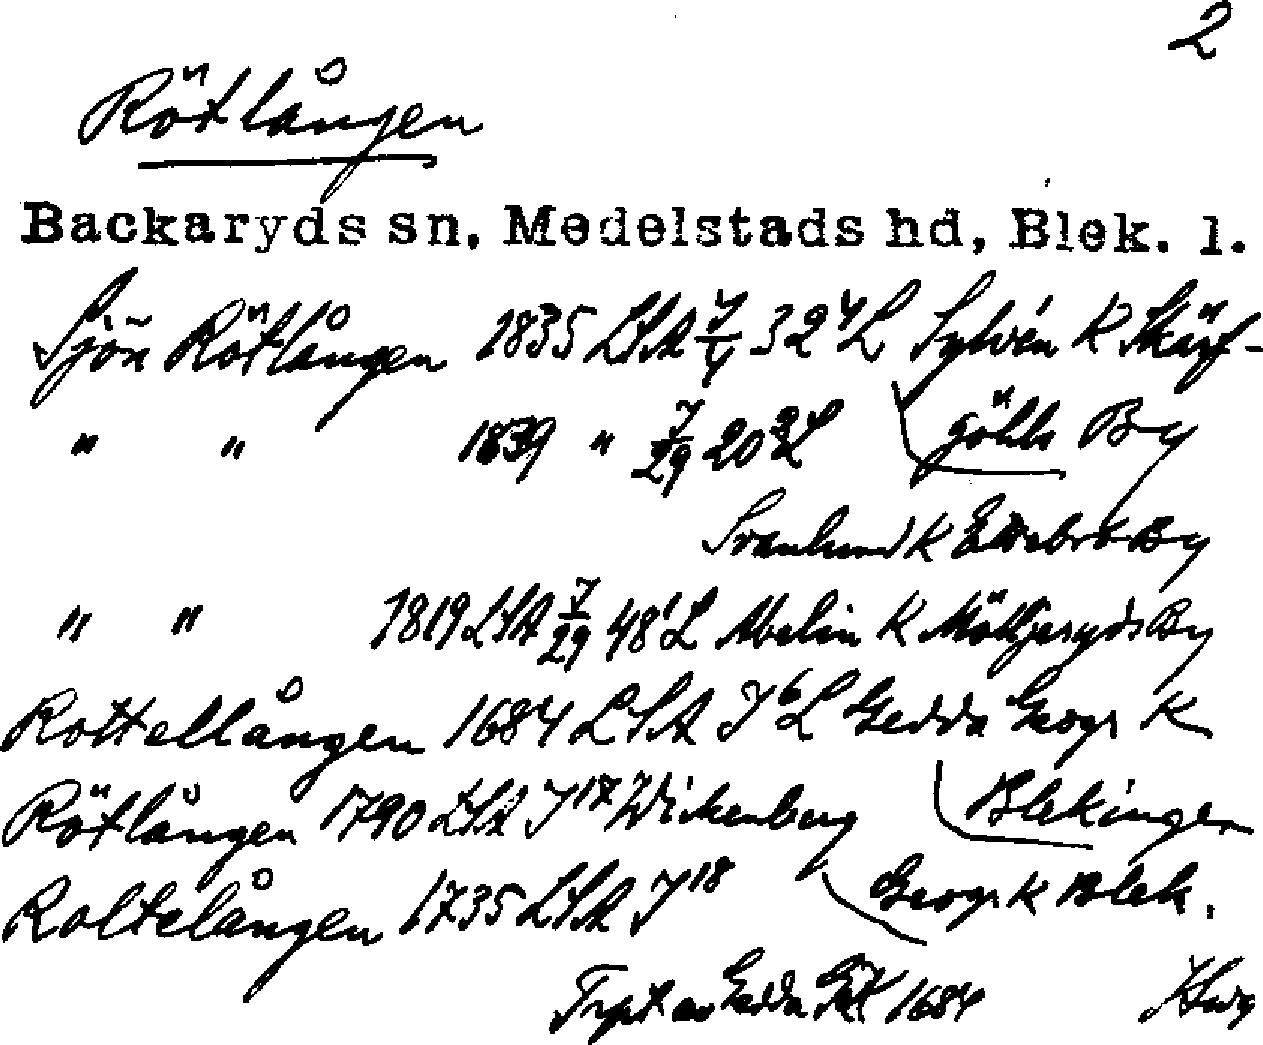 2
Rötlången
Backaryds sn, Medelstads hd, Blek. l.
Sjön Rötlången 1835 LSA J/4 32⁴ L Sylvén K Skärf-
" " 1839 " J/29 20³ L göhls By
Svanlund K Ettebro By
" " 1819 LSA J/29 48¹ L Abelin K Möljeryds By
Rottellången 1684 LSA J⁶ L Gedda Geogr K
Rötlången 1790 LSA J¹⁷ Wickenberg Blekingen
Roltelången 1735 LSA J¹⁸ Geogr K Blek.
Tryckt av Gedda GK 1684